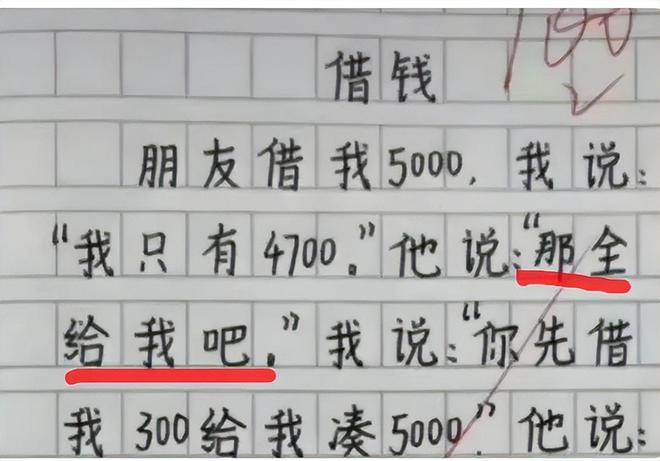 100
借钱
朋友借我5000,我说:
“我只有4700。”他说:“那全
给我吧。”我说:“你先借
我300给我凑5000”他说: